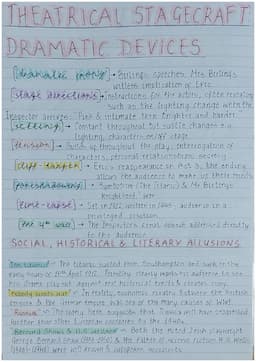 THEATRICAL STAGECRAFT
DRAMATIC DEVICES
[dramatic irony] → Birling's speeches, Mrs Birling's
witless implication of Eric.
[stage directions] → Instructions for the actors, often revealing
such as the lighting change when the
Inspector arrives: Pink & intimate then brighter and harder.
[setting] → Constant throughout but subtle changes e.g.
lighting, characters on/off stage.
[tension] → Builds up throughout the play, interrogation of
characters, personal relationships, secrecy
[cliff-hanger] → Eric's reappearance in Act 3, the ending
allows the audience to make up their minds
[foreshadowing] → Symbolism (The Titanic) & Mr Birling's
knighthood, war
[time-lapse] → Set in 1912, written in 1945, audience in a
privileged position
[the 4th wall] → The Inspector's final speech addressed directly
to the audience
SOCIAL, HISTORICAL & LITERARY ALLUSIONS
The Titanic sailed from Southampton and sunk in the
early hours of 15th April 1912. Priestley clearly wants his audience to see
In reality, economic rivalry between the British
empire & the German empire was one of the many causes of WWI.
"Russia"
further than other European countries by the 1940s.
Bernard Shaws & H.G. Wellses → both the noted Irish playwright
George Bernard Shaw & the father of science fiction H.G. Wells
were well known & outspoken socialists.